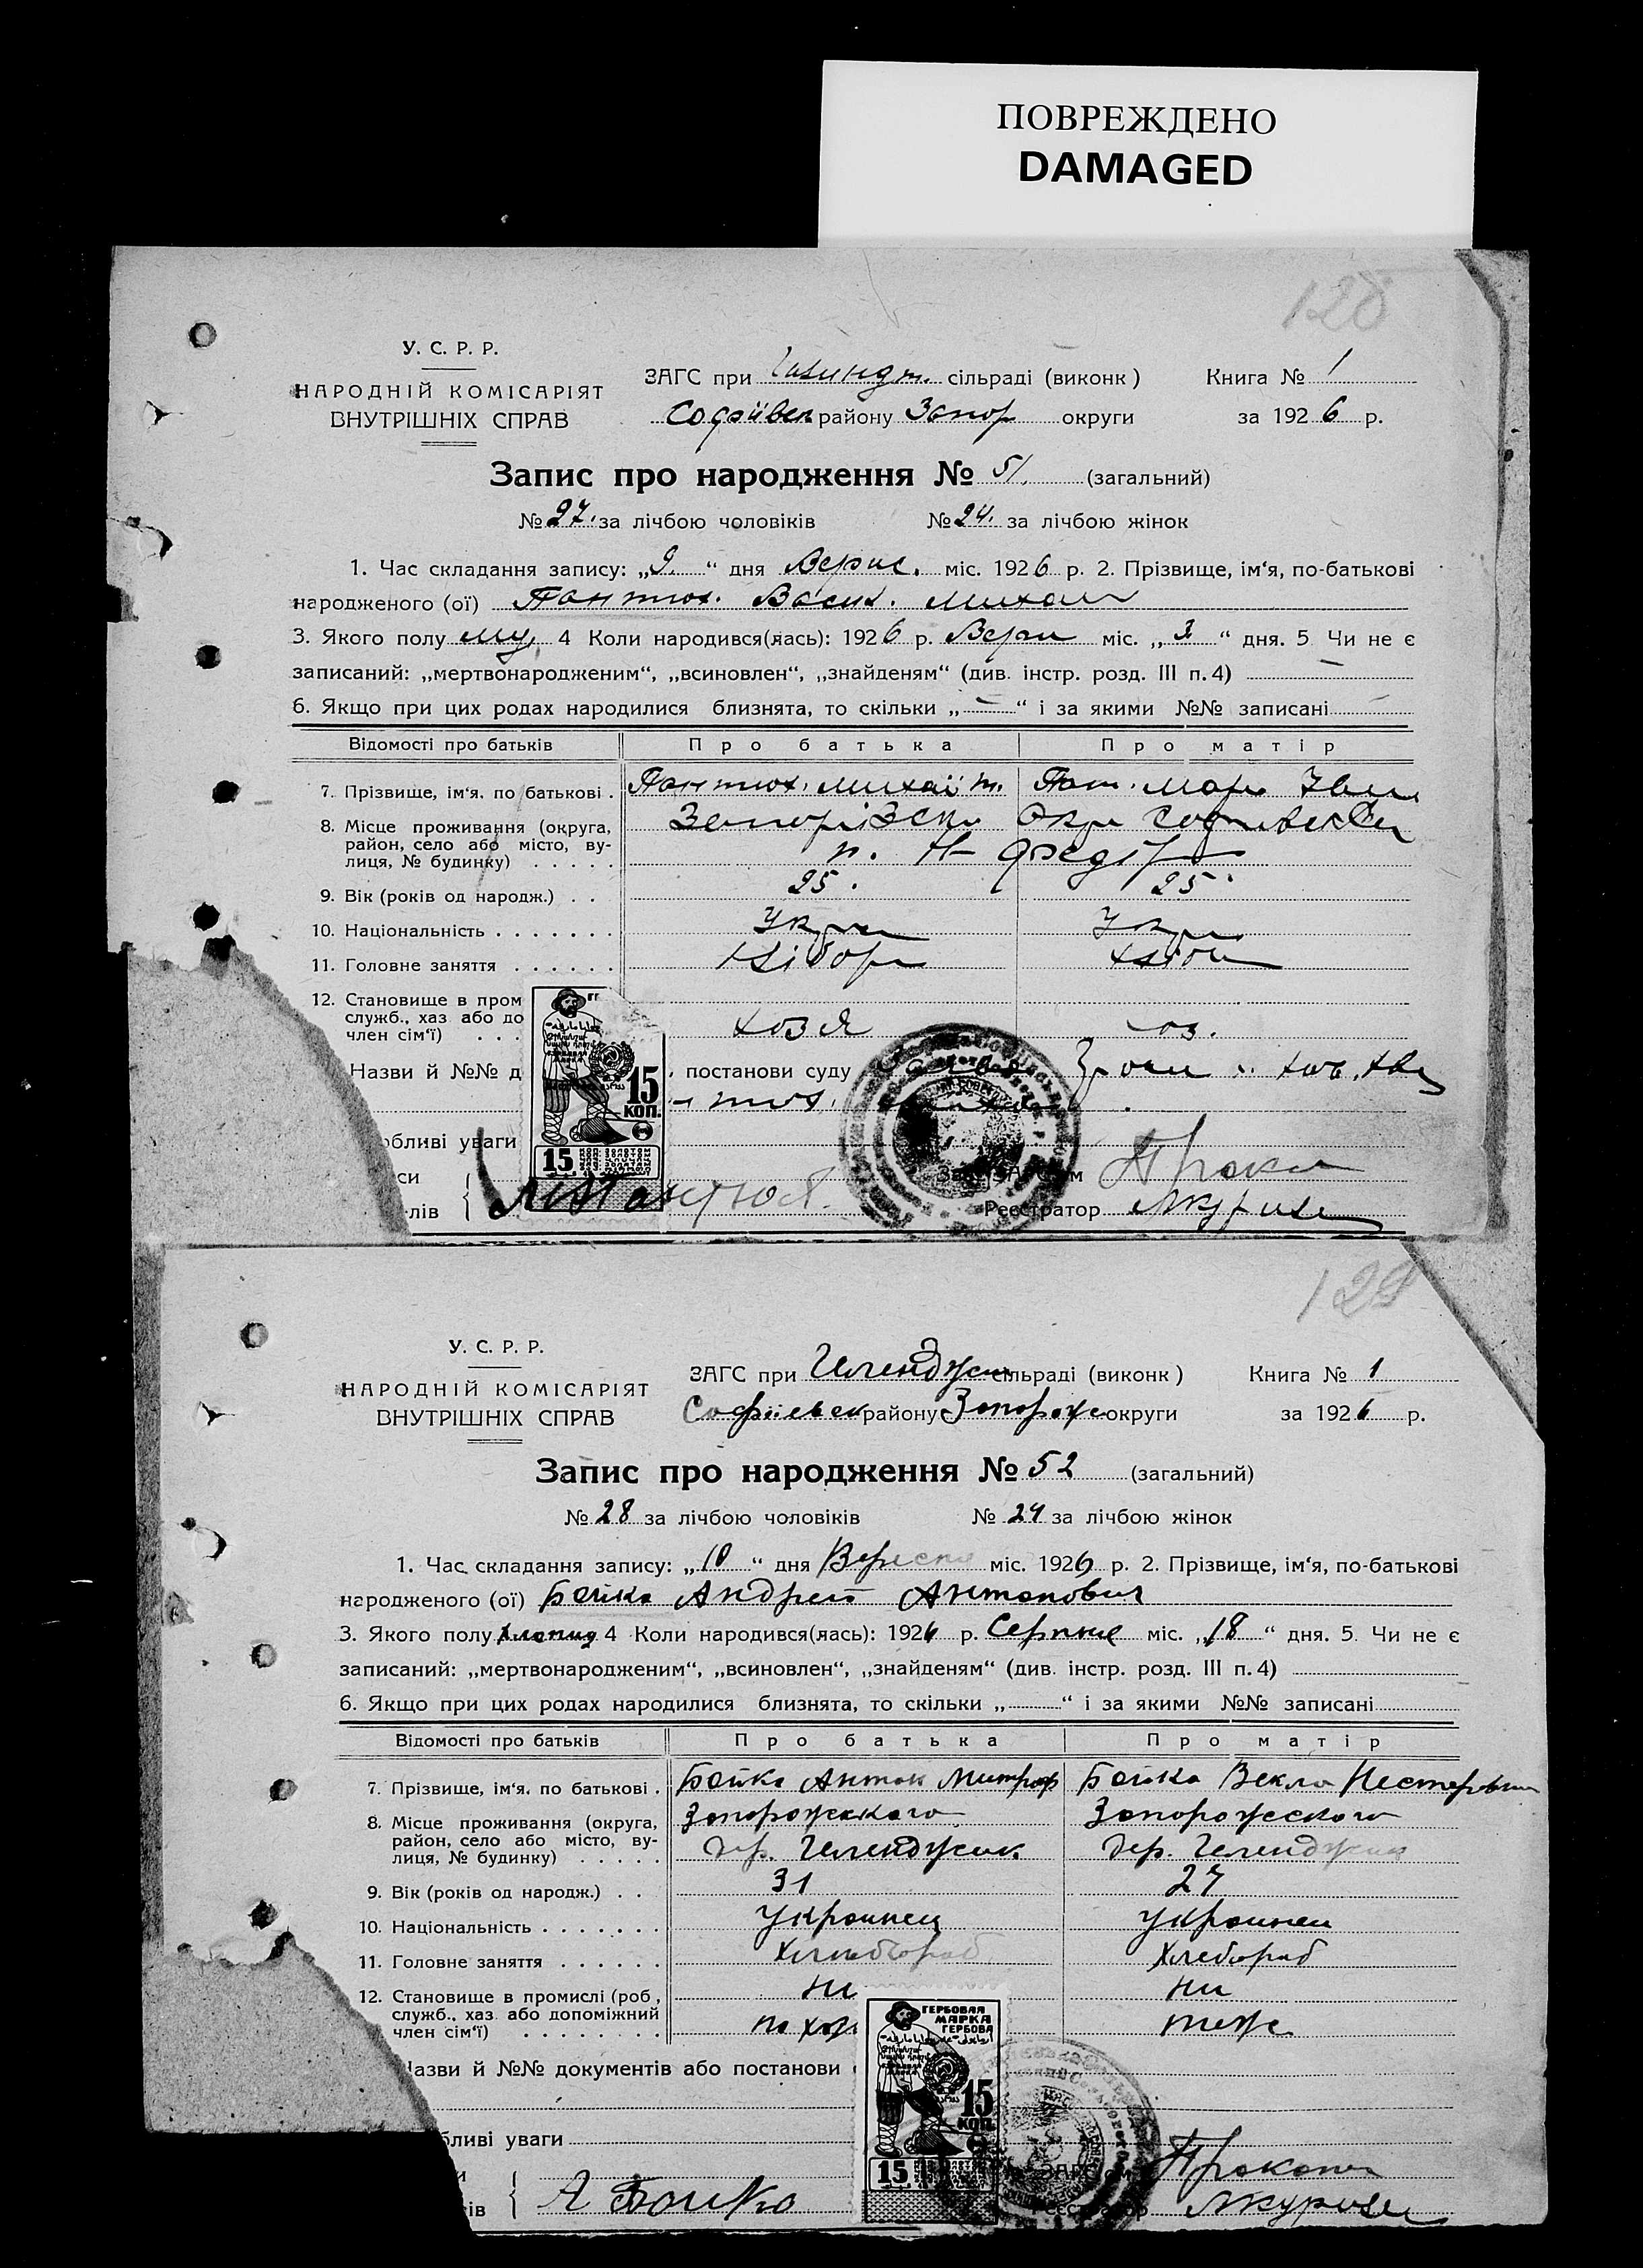 ПОВРЕЖДЕНО
DAMAGED
128
У. С. Р. Р.
НАРОДНІЙ КОМІСАРІЯТ
ВНУТРІШНІХ СПРАВ
ЗАГС при сільраді (виконк)
Книга № 1
Софіївск району Запор округи
за 1926 р.
Запис про народження № 51. (загальний)
№ 27. за лічбою чоловіків № 24. за лічбою жінок
1. Час складання запису: „9.“ дня Верис. міс. 1926 р. 2. Прізвище, ім‘я, по-батькові
народженого (ої) Пантюх. Васил. Михай
3. Якого полу му, 4 Коли народився(лась): 1926 р. Верн міс. „3“ дня. 5 Чи не є
записаний: „мертвонародженим“, „всиновлен“, „знайденям“ (див. інстр. розд. III п. 4) —
6. Якщо при цих родах народилися близнята, то скільки „—“ і за якими №№ записані
Відомості про батьків Про батька Про матір
7. Прізвище, ім‘я, по батькові . Пантюх. Михай т. Пант. Мари Іван
8. Місце проживання (округа, район, село або місто, вулиця, № будинку) . . . . . Запорізск Окр
9. Вік (років од народж.) . . 25. 25.
10. Національність . . . . . . . Укра Укр
11. Головне заняття . . . . . . Хлібор Хліб
12. Становище в пром
служб., хаз або до
член сім‘ї) . . . хозя хоз.
Назви й №№ д , постанови суду
обливі уваги
15 КОП.
15
си
лів
М Пантюх.
Реєстратор
129
У. С. Р. Р.
НАРОДНІЙ КОМІСАРІЯТ
ВНУТРІШНІХ СПРАВ
ЗАГС при Челенджик сільраді (виконк)
Книга № 1
Софіевск району Запорож округи
за 1926 р.
Запис про народження № 52 (загальний)
№ 28 за лічбою чоловіків № 24 за лічбою жінок
1. Час складання запису: „10“ дня Вересня міс. 1926 р. 2. Прізвище, ім‘я, по-батькові
народженого (ої) Бойко Андрей Антонович
3. Якого полу хлопид 4 Коли народився(лась): 1926 р. Серпня міс. „18“ дня. 5. Чи не є
записаний: „мертвонародженим“, „всиновлен“, „знайденям“ (див. інстр. розд. III п. 4)
6. Якщо при цих родах народилися близнята, то скільки „ “ і за якими №№ записані
Відомості про батьків Про батька Про матір
7. Прізвище, ім‘я, по батькові . Бойко Антон Митроф Бойко Векла Нестеровна
8. Місце проживання (округа, Запорожского Запорожского
район, село або місто, ву-
лиця, № будинку) . . . . . дер. Челенджик дер. Челенджик
9. Вік (років од народж.) . . 31 27
10. Національність . . . . . . . Украинец Украинец
11. Головне заняття . . . . . . Хлебороб Хлебороб
12. Становище в промислі (роб,
служб., хаз або допоміжний
член сім‘ї) . . . . . . . . тоже
Назви й №№ документів або постанови
бливі уваги
ГЕРБОВАЯ
МАРКА
ГЕРБОВА
15 КОП.
15
ів
А Бойко
Реєстратор